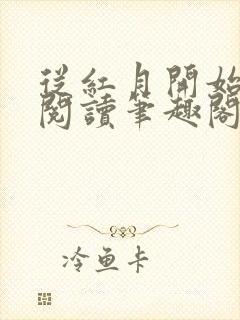 從紅月開始
閱讀筆趣閣
冷鱼卡